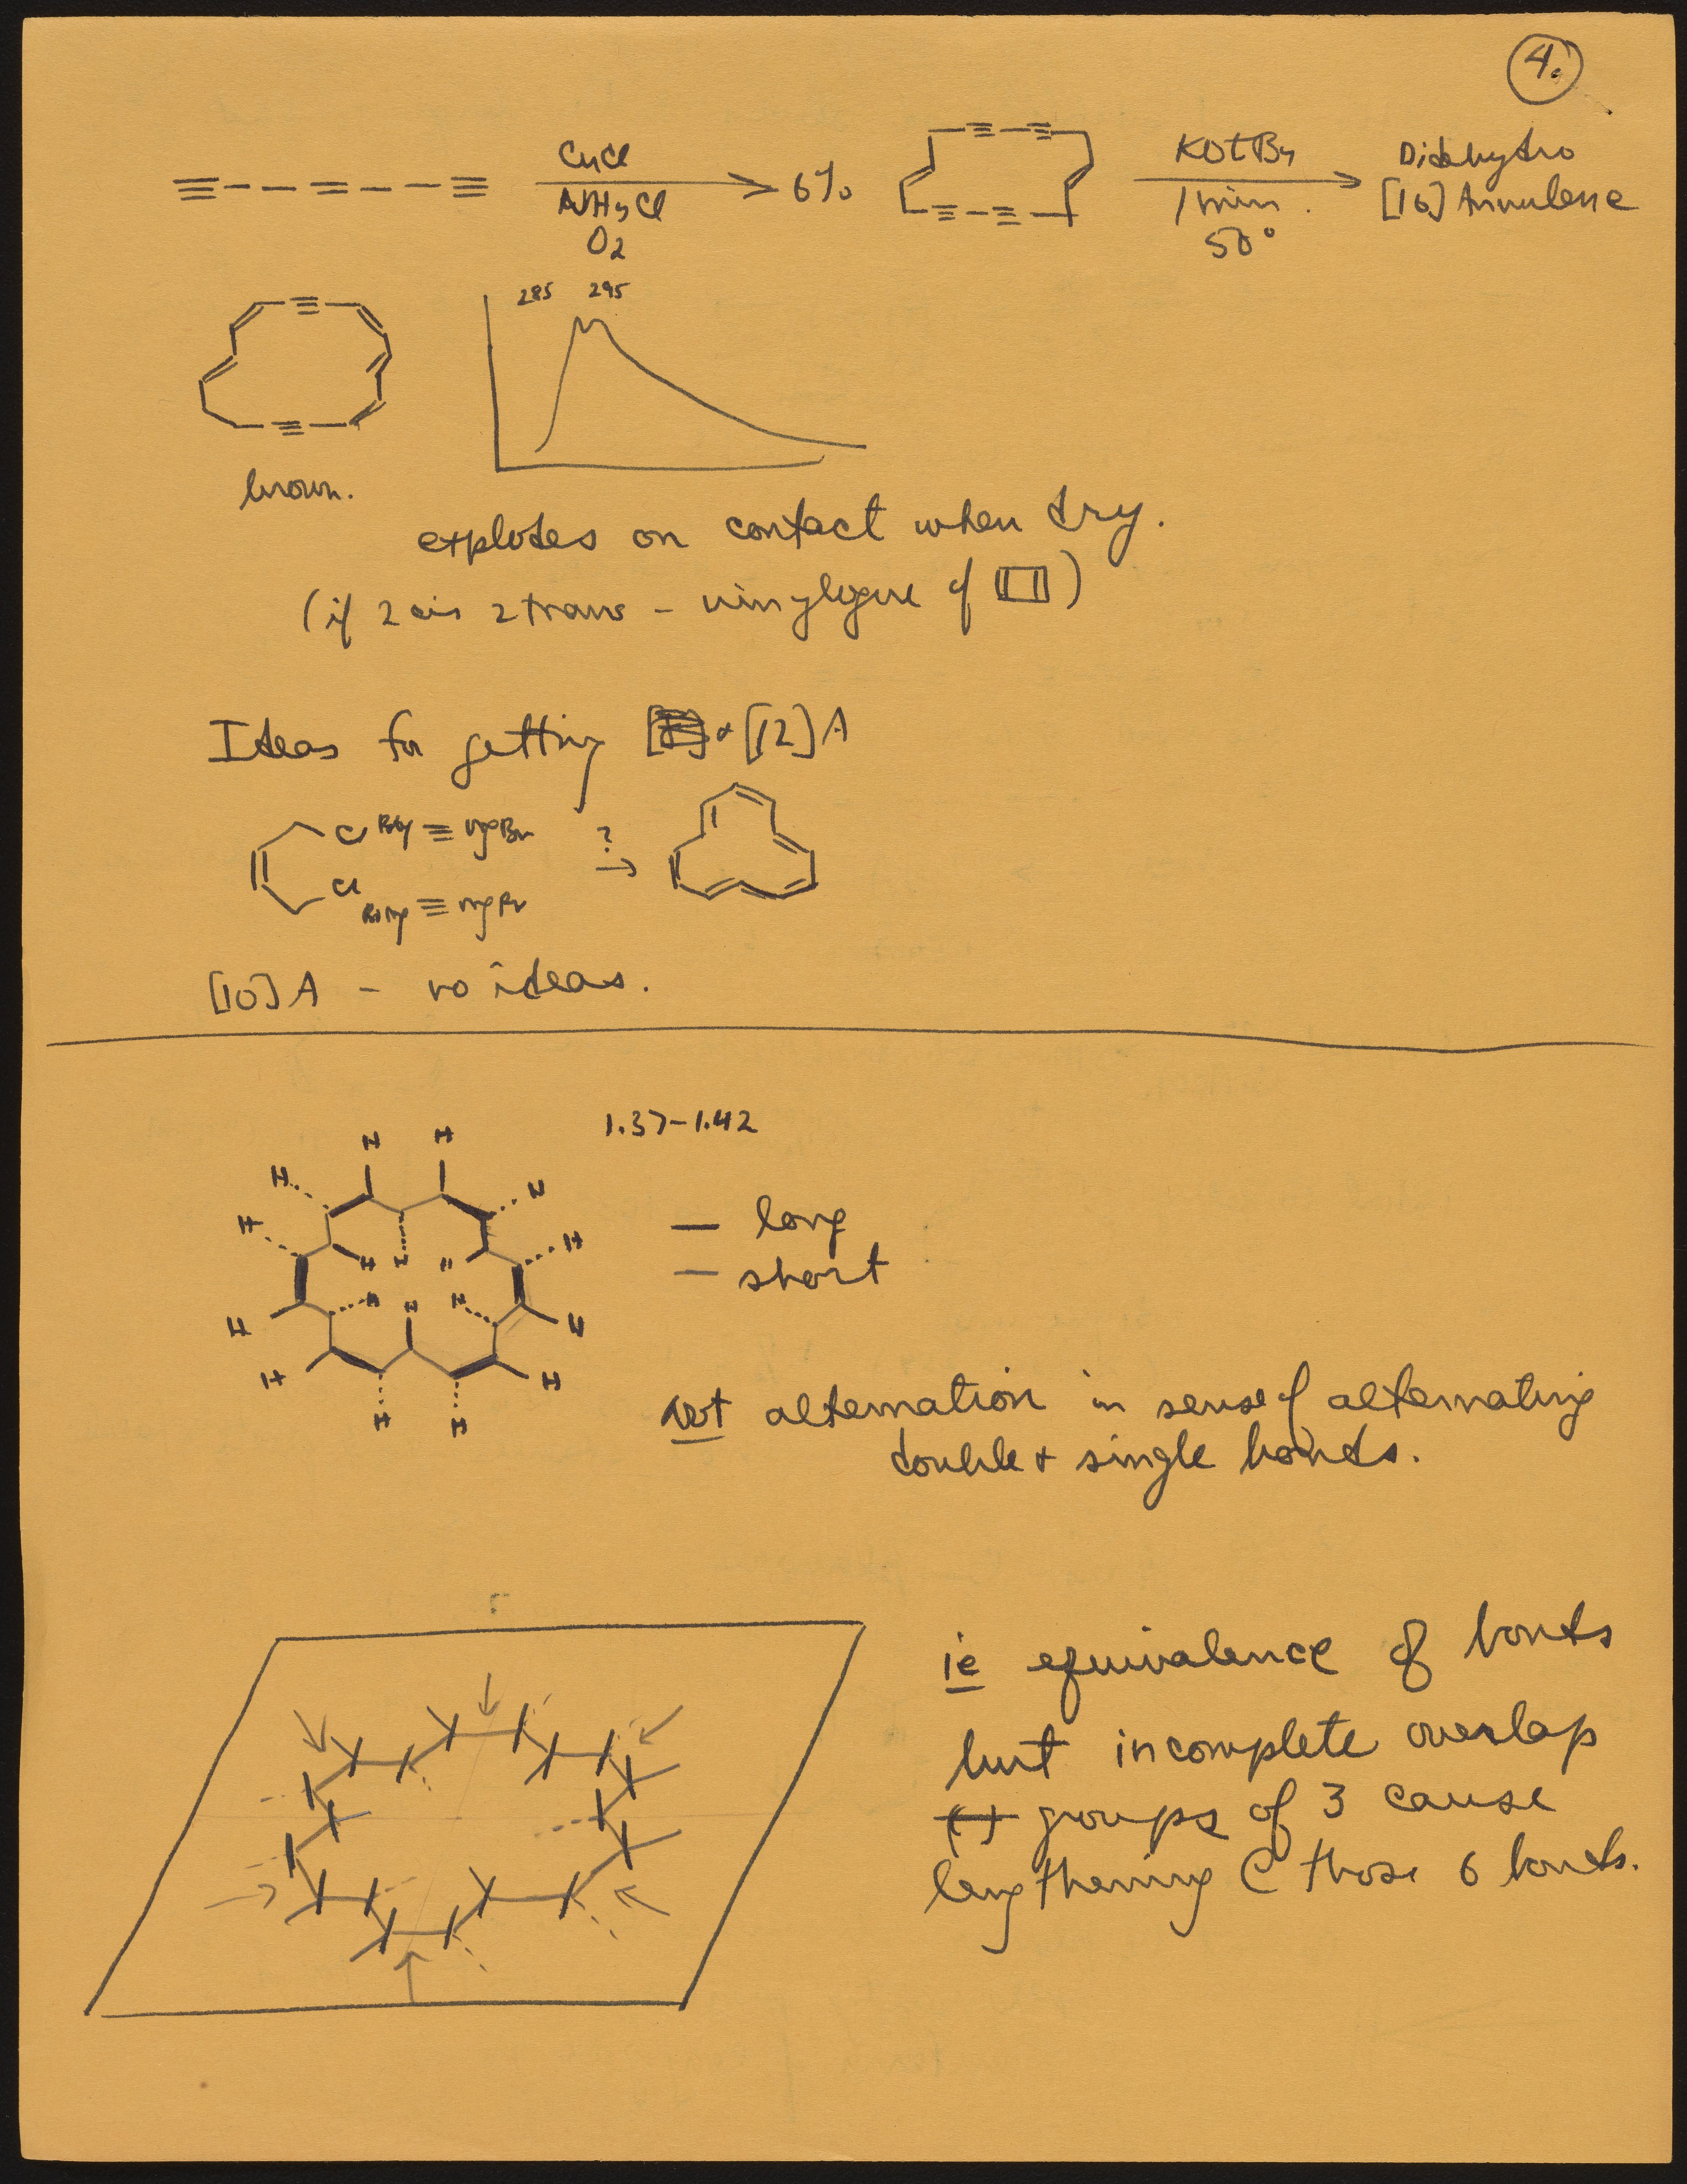 4.
CuCl
NH4Cl
O2
6%
KOtBu
1 min.
50°
Didehydro
[16] Annulene
285 295
brown.
explodes on contact when dry.
(if 2 cis 2 trans - vinylogue of )
Ideas for getting + [12] A
Cl BrMg ≡ MgBr
?
Cl
BrMg ≡ MgBr
[10] A - no ideas.
1.37-1.42
H H
H H
H H
H H H
H H H
H H
H H
H H
— long
— short
not alternation in sense of alternating
double + single bonds.
ie equivalence of bonds
but incomplete overlap
groups of 3 cause
lengthening C those 6 bonds.